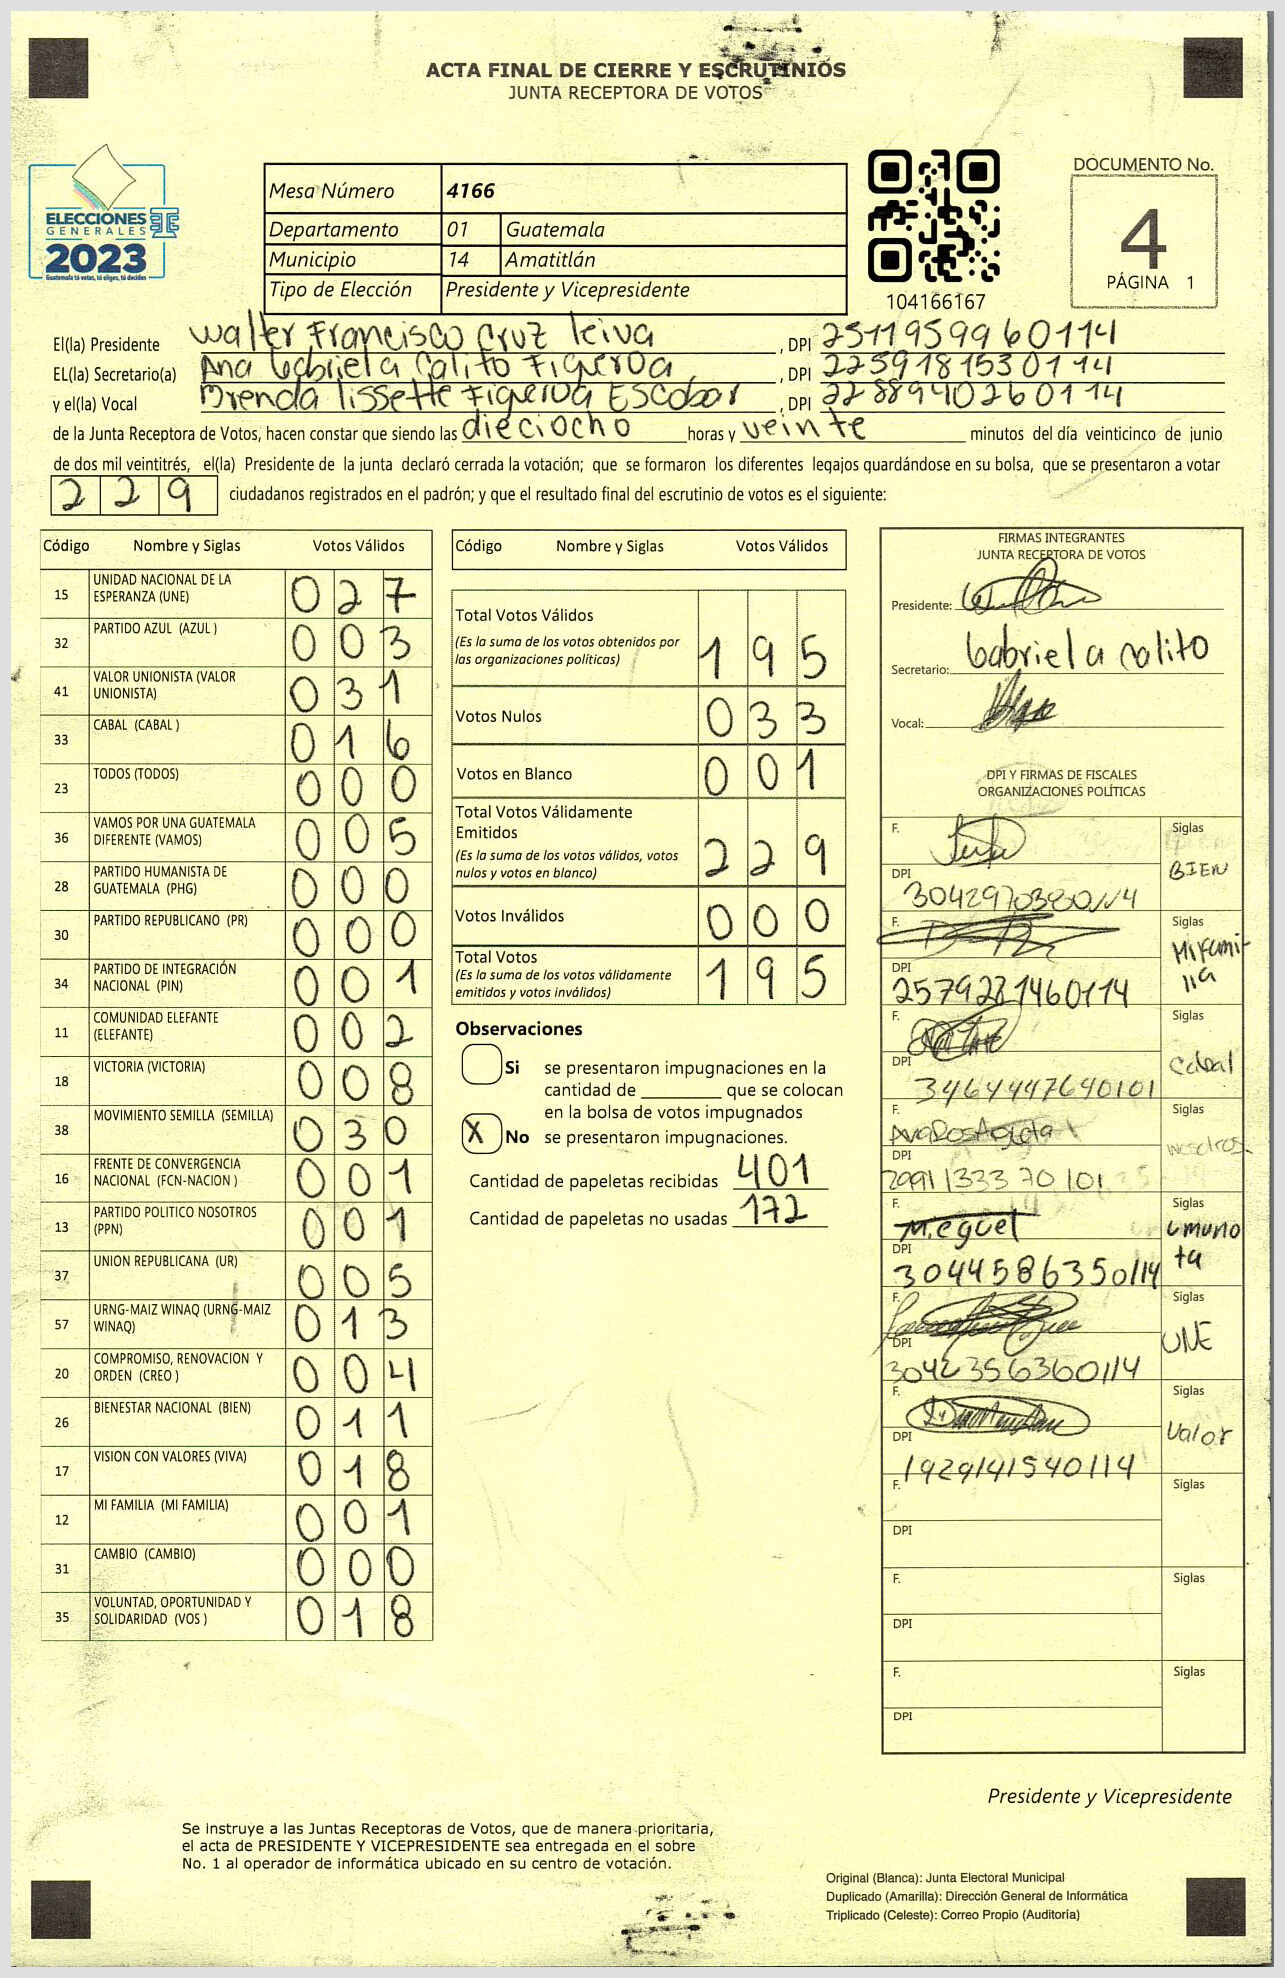 ACTA FINAL DE CIERRE Y ESCRUTINIOS
JUNTA RECEPTORA DE VOTOS
ELECCIONES
GENERALES
2023
Guatemala tú votas, tú eliges, tú decides
Mesa Número 4166
Departamento 01 Guatemala
Municipio 14 Amatitlán
Tipo de Elección Presidente y Vicepresidente
104166167
DOCUMENTO No.
4
PÁGINA 1
El(la) Presidente Walter Francisco Cruz leiva , DPI 2511959960114
EL(la) Secretario(a) Ana Gabriela Calito Figueroa , DPI 2259181530114
y el(la) Vocal Brenda lissette Figueroa Escobar , DPI 2288940260114
de la Junta Receptora de Votos, hacen constar que siendo las dieciocho horas y veinte minutos del día veinticinco de junio
de dos mil veintitrés, el(la) Presidente de la junta declaró cerrada la votación; que se formaron los diferentes legajos guardándose en su bolsa, que se presentaron a votar
229 ciudadanos registrados en el padrón; y que el resultado final del escrutinio de votos es el siguiente:
Código Nombre y Siglas Votos Válidos
15 UNIDAD NACIONAL DE LA ESPERANZA (UNE) 027
32 PARTIDO AZUL (AZUL ) 003
41 VALOR UNIONISTA (VALOR UNIONISTA) 031
33 CABAL (CABAL ) 016
23 TODOS (TODOS) 000
36 VAMOS POR UNA GUATEMALA DIFERENTE (VAMOS) 005
28 PARTIDO HUMANISTA DE GUATEMALA (PHG) 000
30 PARTIDO REPUBLICANO (PR) 000
34 PARTIDO DE INTEGRACIÓN NACIONAL (PIN) 001
11 COMUNIDAD ELEFANTE (ELEFANTE) 002
18 VICTORIA (VICTORIA) 008
38 MOVIMIENTO SEMILLA (SEMILLA) 030
16 FRENTE DE CONVERGENCIA NACIONAL (FCN-NACION ) 001
13 PARTIDO POLITICO NOSOTROS (PPN) 001
37 UNION REPUBLICANA (UR) 005
57 URNG-MAIZ WINAQ (URNG-MAIZ WINAQ) 013
20 COMPROMISO, RENOVACION Y ORDEN (CREO ) 004
26 BIENESTAR NACIONAL (BIEN) 011
17 VISION CON VALORES (VIVA) 018
12 MI FAMILIA (MI FAMILIA) 001
31 CAMBIO (CAMBIO) 000
35 VOLUNTAD, OPORTUNIDAD Y SOLIDARIDAD (VOS ) 018
Código Nombre y Siglas Votos Válidos
Total Votos Válidos
(Es la suma de los votos obtenidos por las organizaciones políticas) 195
Votos Nulos 033
Votos en Blanco 001
Total Votos Válidamente Emitidos
(Es la suma de los votos válidos, votos nulos y votos en blanco) 229
Votos Inválidos 000
Total Votos
(Es la suma de los votos válidamente emitidos y votos inválidos) 195
Observaciones
Si se presentaron impugnaciones en la
cantidad de ________ que se colocan
en la bolsa de votos impugnados
X No se presentaron impugnaciones.
Cantidad de papeletas recibidas 401
Cantidad de papeletas no usadas 172
FIRMAS INTEGRANTES
JUNTA RECEPTORA DE VOTOS
Presidente:
Secretario: Gabriela Calito
Vocal:
DPI Y FIRMAS DE FISCALES
ORGANIZACIONES POLÍTICAS
F. Siglas
BIEN
DPI
F. Siglas
Mi familia
DPI 2579221460114
F. Siglas
Cabal
DPI 3464447640101
F. Siglas
nosotros
DPI 2991133370101
F. Miguel Siglas
DPI 3044586350114
F. Siglas
UNE
DPI 3042356360114
F. Siglas
Valor
DPI 1929141540114
F. Siglas
DPI
F. Siglas
DPI
F. Siglas
DPI
Presidente y Vicepresidente
Se instruye a las Juntas Receptoras de Votos, que de manera prioritaria,
el acta de PRESIDENTE Y VICEPRESIDENTE sea entregada en el sobre
No. 1 al operador de informática ubicado en su centro de votación.
Original (Blanca): Junta Electoral Municipal
Duplicado (Amarilla): Dirección General de Informática
Triplicado (Celeste): Correo Propio (Auditoría)